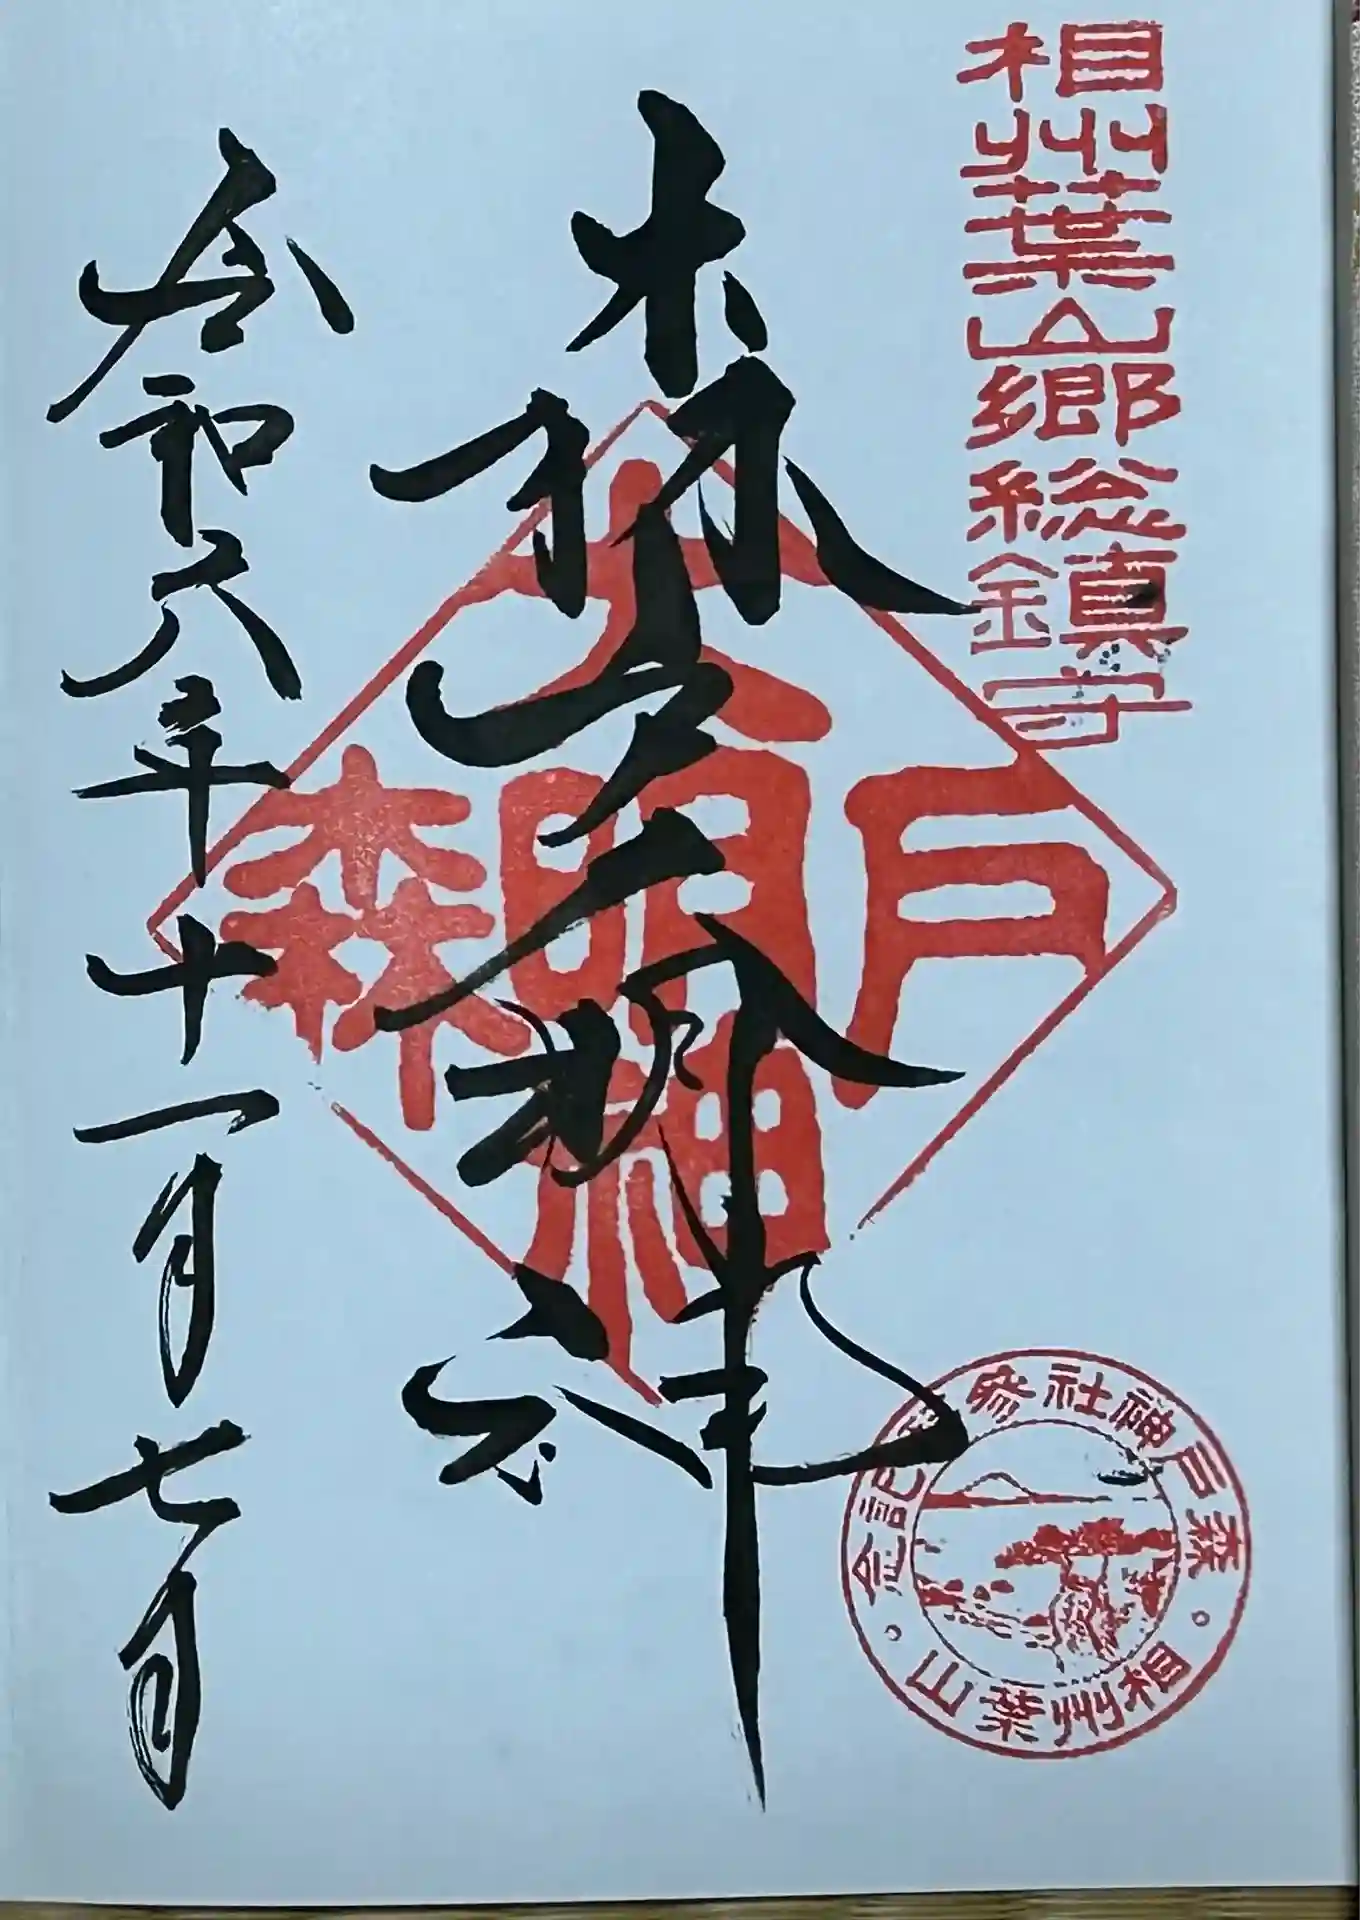 相州葉山郷総鎮守
森戸大明神
令和六年十一月七日
大
戸明森
神
森戸神社参拝記念
相州葉山